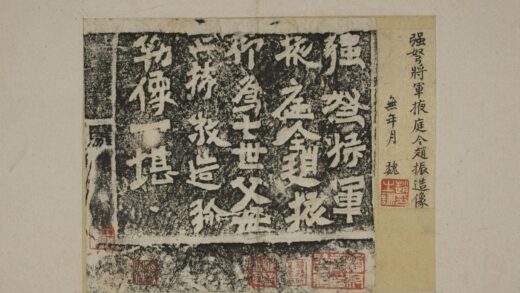 强弩將軍掖庭令趙振造像
無年月 魏
强弩將軍
掖庭令趙振
仰為七世父母
敬造弥
勒像一堪